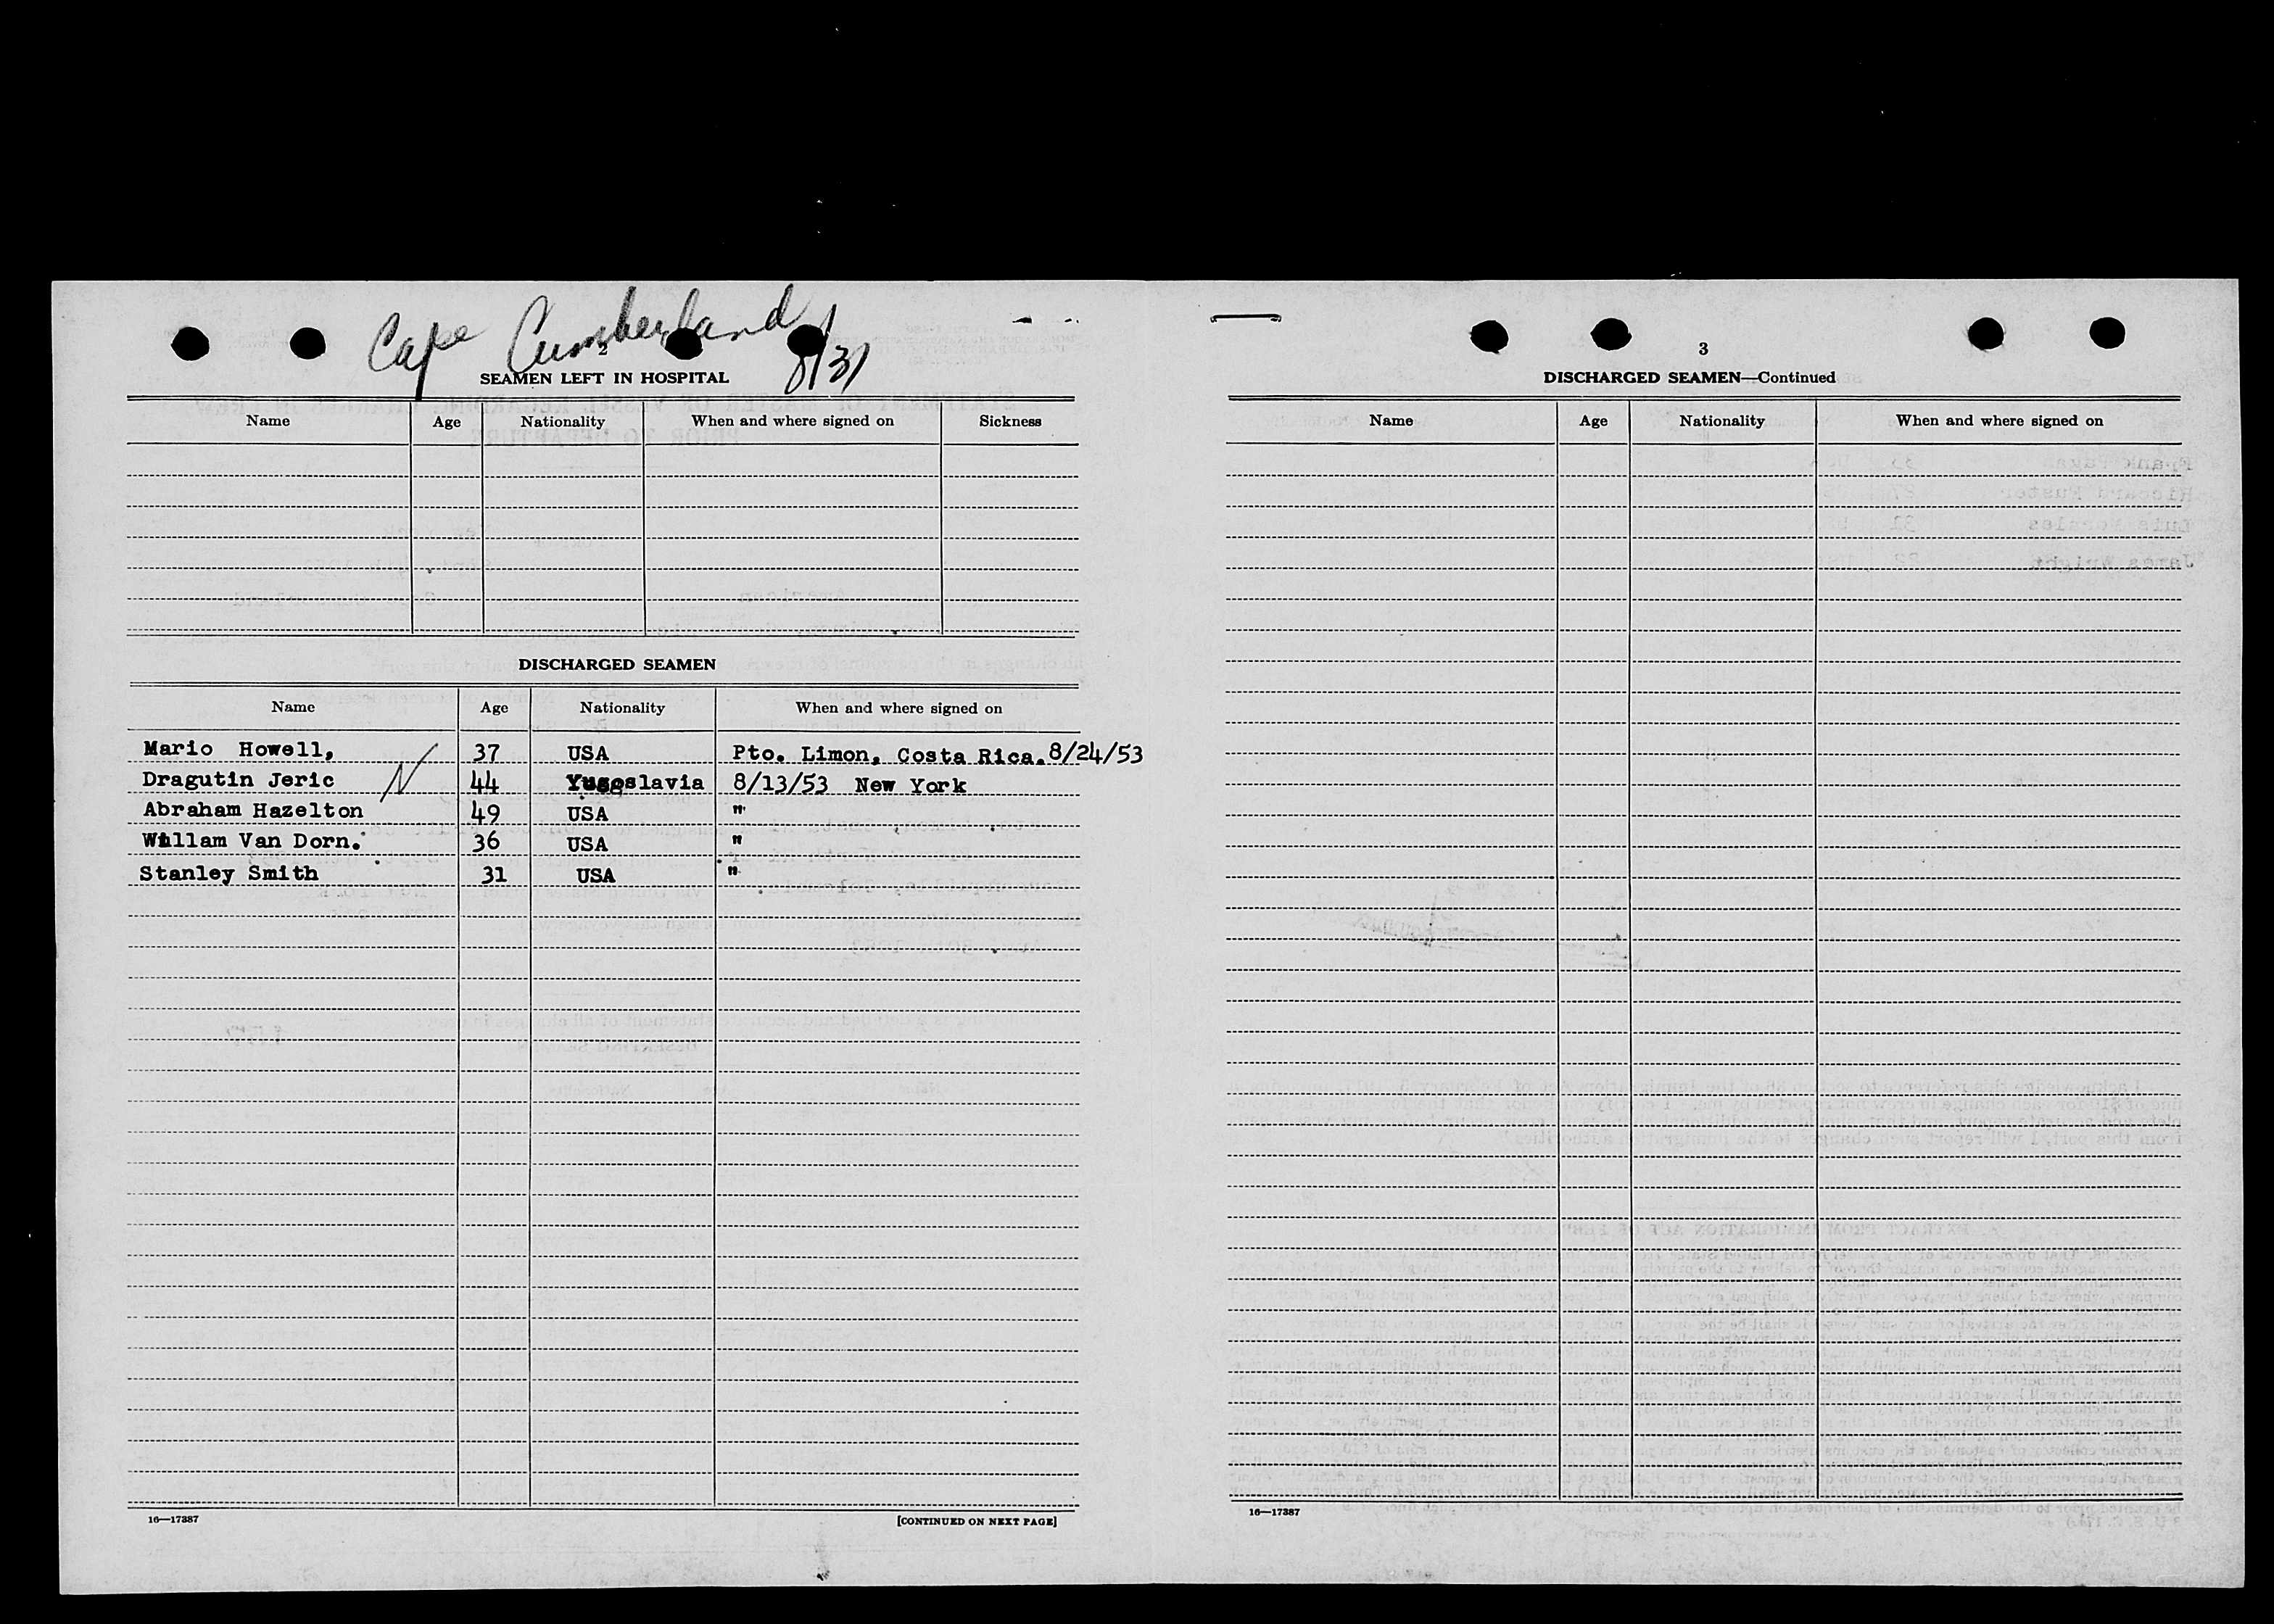 Cape Cumberland
8/31
2
SEAMEN LEFT IN HOSPITAL
Name Age Nationality When and where signed on Sickness
DISCHARGED SEAMEN
Name Age Nationality When and where signed on
Mario Howell, 37 USA Pto. Limon, Costa Rica. 8/24/53
Dragutin Jeric N 44 Yugoslavia 8/13/53 New York
Abraham Hazelton 49 USA "
Willam Van Dorn. 36 USA "
Stanley Smith 31 USA "
16—17387 [CONTINUED ON NEXT PAGE]
3
DISCHARGED SEAMEN—Continued
Name Age Nationality When and where signed on
16—17387